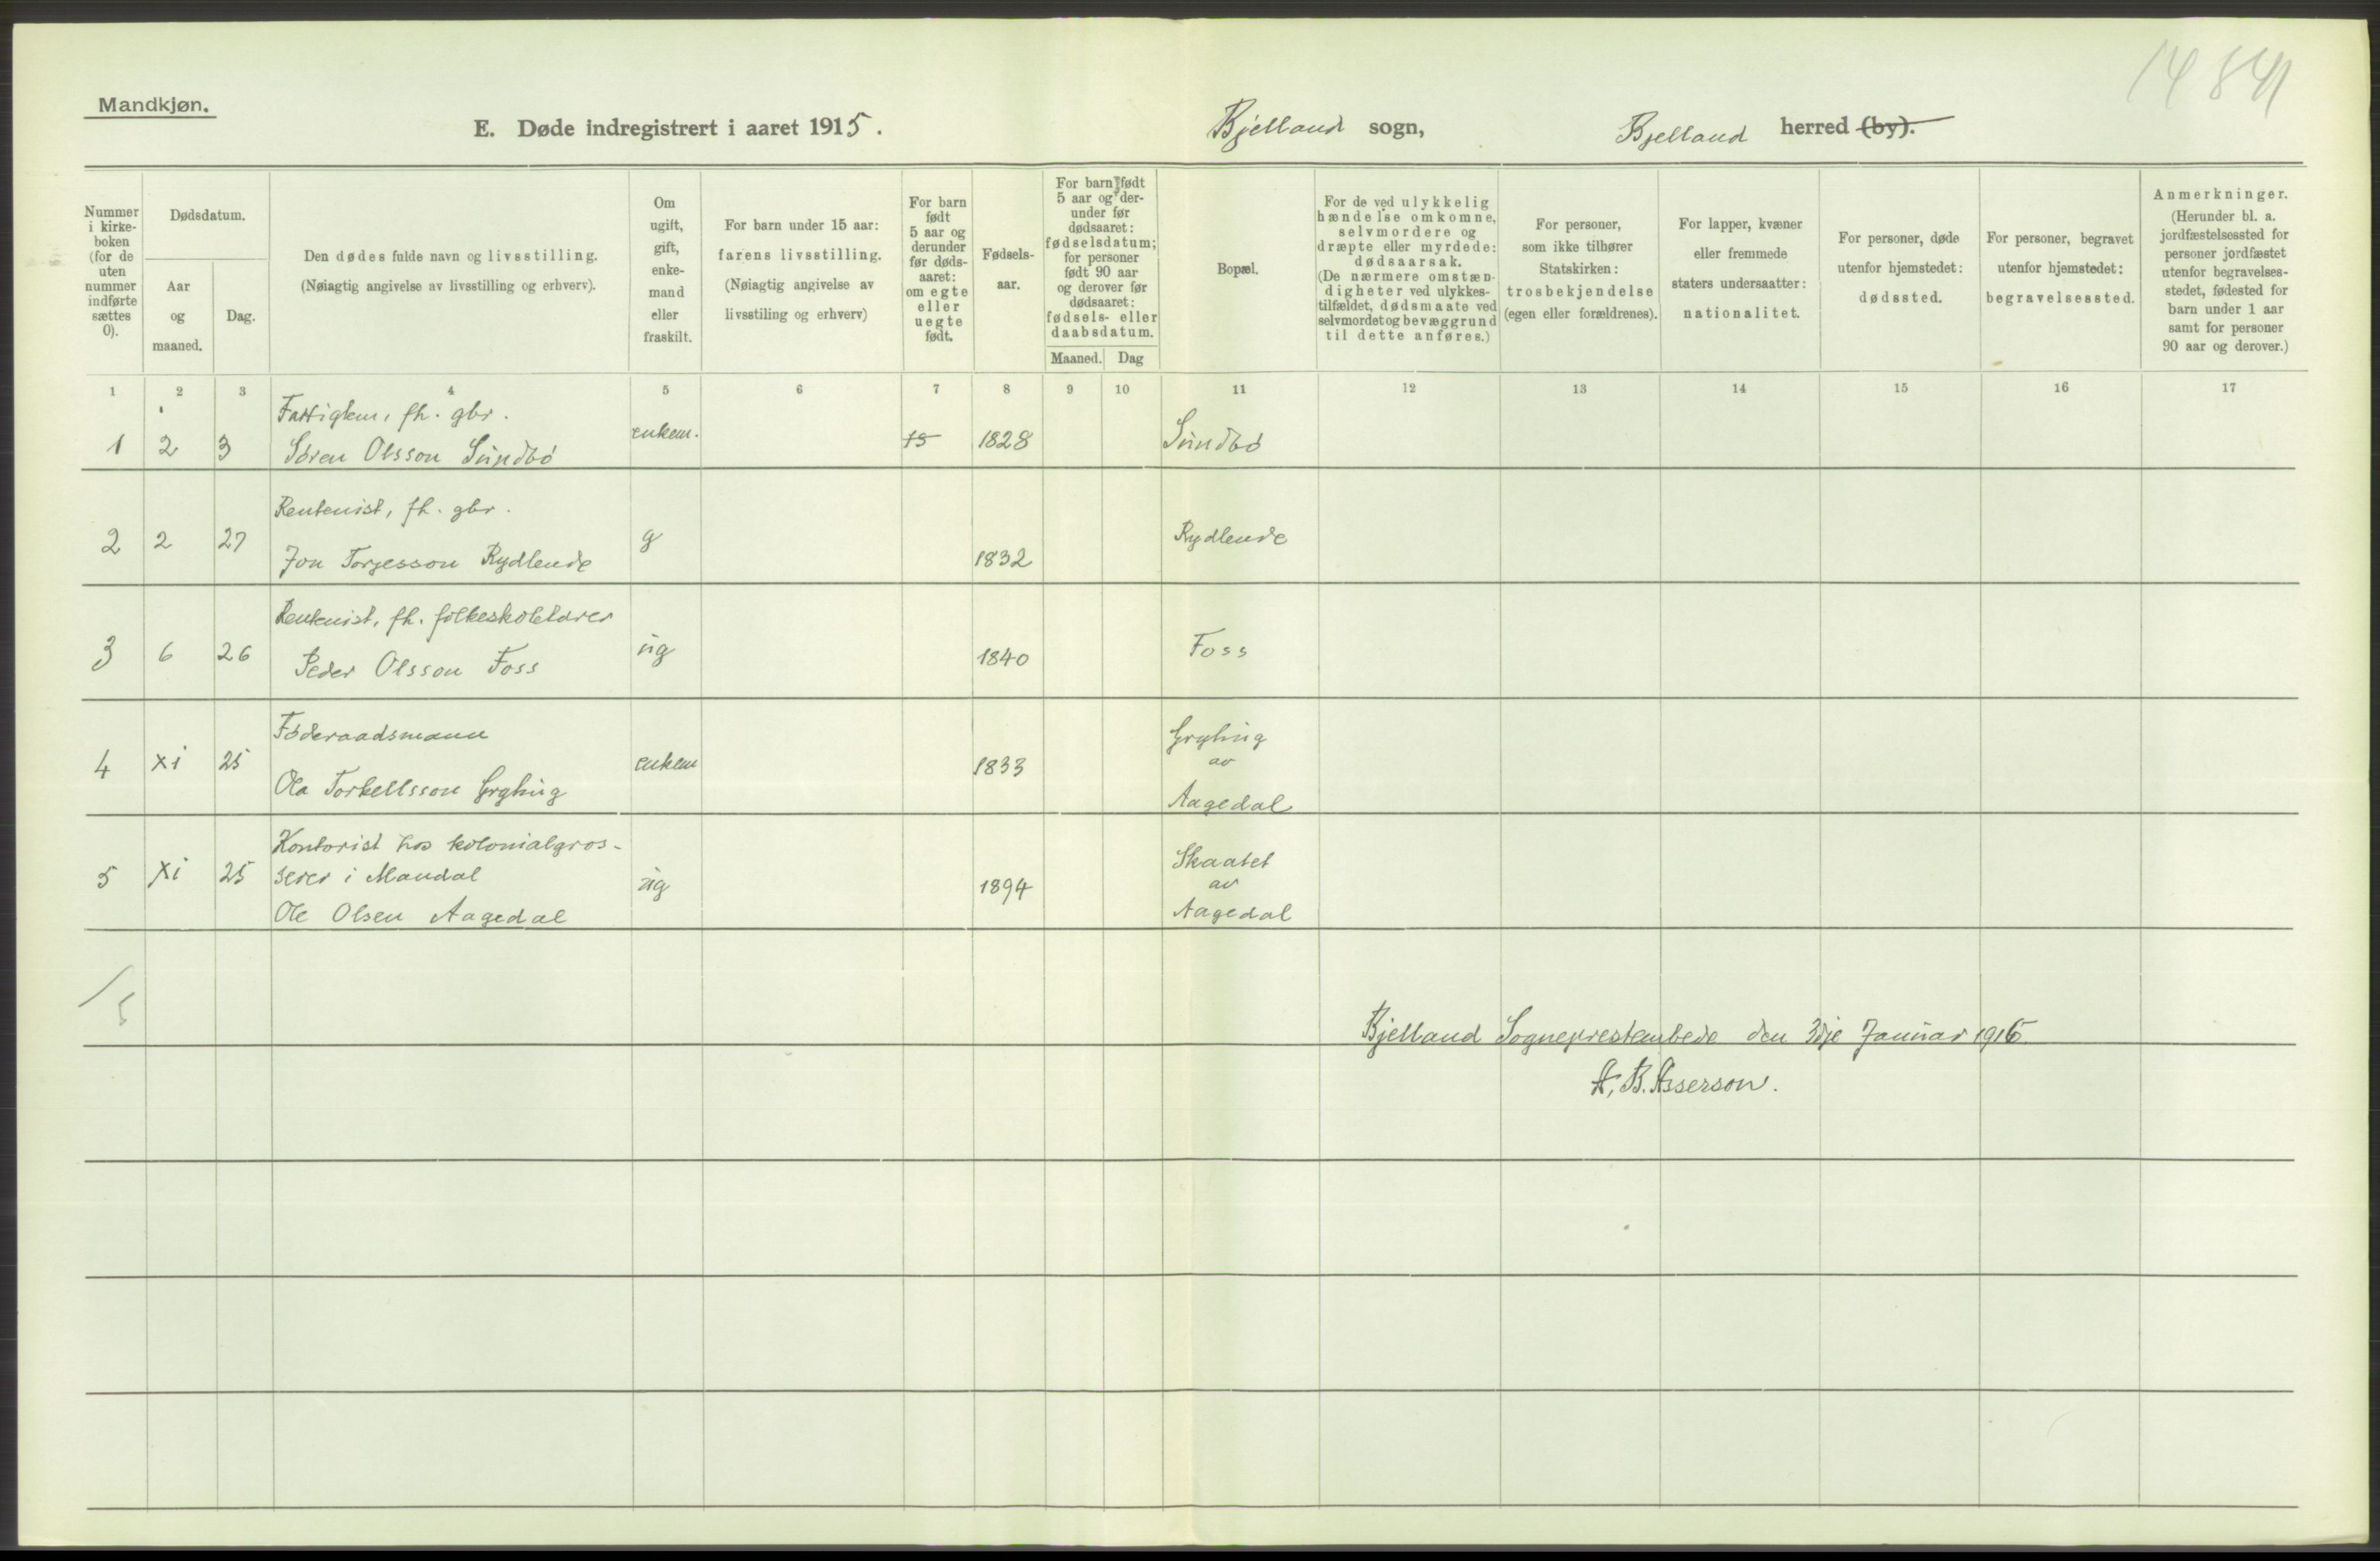 14841
Mandkjøn.
E. Døde indregistrert i aaret 1915.
Bjelland sogn,
Bjelland herred (by).
Nummer i kirkeboken (for de uten nummer indførte sættes 0).
Dødsdatum.
Aar og maaned.
Dag.
Den dødes fulde navn og livsstilling.
(Nøiagtig angivelse av livsstilling og erhverv).
Om ugift, gift, enkemand eller fraskilt.
For barn under 15 aar:
farens livsstilling.
(Nøiagtig angivelse av livsstiling og erhverv)
For barn født 5 aar og derunder før dødsaaret: om egte eller uegte født.
Fødselsaar.
For barn født 5 aar og derunder før dødsaaret: fødselsdatum; for personer født 90 aar og derover før dødsaaret: fødsels- eller daabsdatum.
Maaned. Dag
Bopæl.
For de ved ulykkelig hændelse omkomne, selvmordere og dræpte eller myrdede: dødsaarsak.
(De nærmere omstændigheter ved ulykkestilfældet, dødsmaate ved selvmordet og bevæggrund til dette anføres.)
For personer, som ikke tilhører Statskirken: trosbekjendelse (egen eller forældrenes).
For lapper, kvæner eller fremmede staters undersaatter: nationalitet.
For personer, døde utenfor hjemstedet: dødssted.
For personer, begravet utenfor hjemstedet: begravelsessted.
Anmerkninger.
(Herunder bl. a. jordfæstelsessted for personer jordfæstet utenfor begravelsesstedet, fødested for barn under 1 aar samt for personer 90 aar og derover.)
1 2 3 4 5 6 7 8 9 10 11 12 13 14 15 16 17
Fattiglem, fh. gbr.
1 2 3 Sören Olsson Sundbö enkem. 15 1828 Sundbö
Rentenist, fh. gbr.
2 2 27 Jon Torjesson Rydlende g 1832 Rydlende
Rentenist, fh. folkeskolelærer
3 6 26 Peder Olsson Foss ug 1840 Foss
Föderaadsmann
4 XI 25 Ola Torkellsson Gryting enkem 1833 Gryting av Aagedal
Kontorist hos kolonialgros-
5 XI 25 serer i Mandal ug 1894 Skaatet av Aagedal
Ole Olsen Aagedal
/5
Bjelland Sogneprestembede den 3dje Januar 1916.
A. B. Asserson.